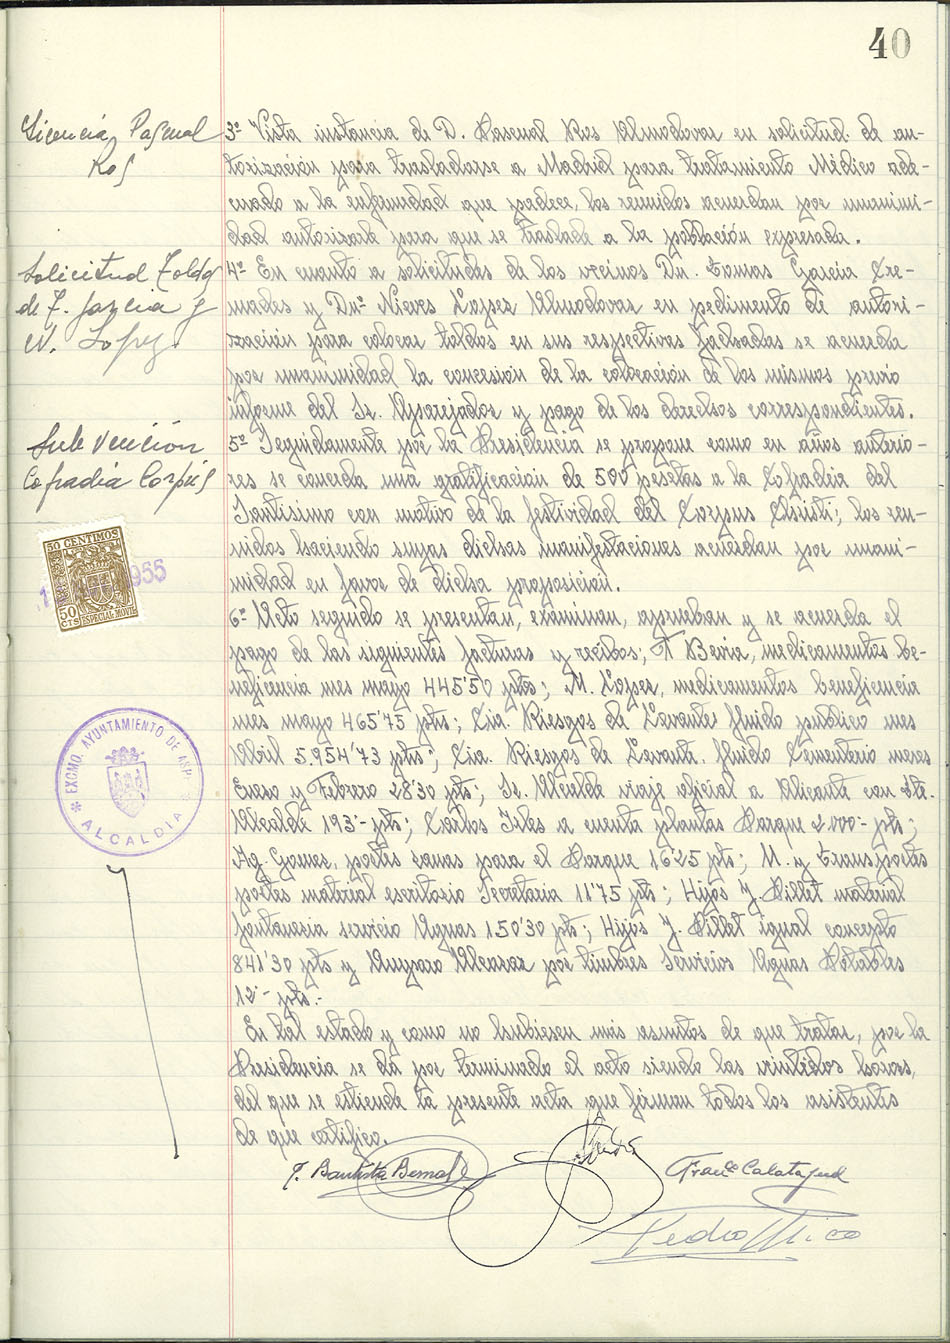 40
Licencia Pascual
Ros
3º Vista instancia de D. Pascual Ros Almodovar en solicitud de au-
torización para trasladarse a Madrid para tratamiento Médico ade-
cuado a la enfermedad que padece, los reunidos acuerdan por unanimi-
dad autorizarle para que se traslade a la población expresada.
Solicitud Toldos
de T. Garcia y
N. Lopez
4º En cuanto a solicitudes de los vecinos Dn. Tomas Garcia Cre-
mades y Dñª Nieves Lopez Almodovar en pedimento de autori-
zación para colocar toldos en sus respectivas fachadas se acuerda
por unanimidad la concesion de la colocación de los mismos previo
informe del Sr. Aparejador y pago de los derechos correspondientes.
Subvención
Cofradia Corpus
5º Seguidamente por la Presidencia se propone como en años anterio-
res se conceda una gratificación de 500 pesetas a la Cofradia del
Santisimo con motivo de la festividad del Corpus Christi; los reu-
nidos haciendo suyas dichas manifestaciones acuerdan por unani-
midad en favor de dicha proposición.
50 CENTIMOS
50
CTS ESPECIAL MOVIL
1955
6º Acto seguido se presentan, examinan, aprueban y se acuerda el
pago de las siguientes facturas y recibos; A Beviá, medicamentos be-
neficencia mes mayo 445'50 pts; M. Lopez, medicamentos beneficencia
mes mayo 465'75 pts; Cia. Riegos de Levante fluido publico mes
Abril 5.954'73 pts; Cia. Riegos de Levante. fluido Cementerio meses
Enero y Febrero 28'30 pts; Sr. Alcalde viaje oficial a Alicante con Ste.
Alcalde 193'- pts; Carlos Isles a cuenta plantas Parque 2.000'- pts;
Ag. Gomes, portes ramas para el Parque 16'25 pts; M. y Transportes
portes material escritorio Secretaria 11'75 pts; Hijos J. Billet material
fontaneria servicio Aguas 150'30 pts; Hijos J. Billet igual concepto
841'30 pts y Amparo Alcaraz por timbres Servicios Aguas Potables
12'- pts.-
EXCMO. AYUNTAMIENTO DE ASPE
ALCALDIA
En tal estado y como no hubiesen mis asuntos de que tratar, por la
Presidencia se dá por terminado el acto siendo las vintidos horas,
del que se estiende la presente acta que firman todos los asistentes
de que certifico.
J. Bautista Bernabé
Franco Calatayud
Pedro Mico